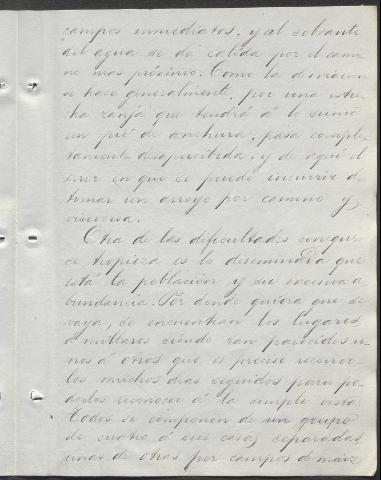 campos inmediatos, y al sobrante
del agua se dá salida por el cami
no mas próximo. Como la desviacion
se hace generalmente, por una estre
cha zanja que tendrá á lo sumo
un pié de anchura, pasa comple
tamente desapercibida, y de aquí el
error en que se puede incurrir de
tomar un arroyo por camino y
viceversa.
Otra de las dificultades con que
se tropieza es lo diseminada que
está la población y su excesiva a
bundancia. Por donde quiera que se
vaya, se encuentran los lugares
á millares siendo tan parecidos u-
nos á otros que es preciso recorrer
los muchos dias seguidos para po-
derlos reconocer á la simple vista.
Todos se componen de un grupo
de cuatro á seis casas, separadas
unas de otras por campos de maiz